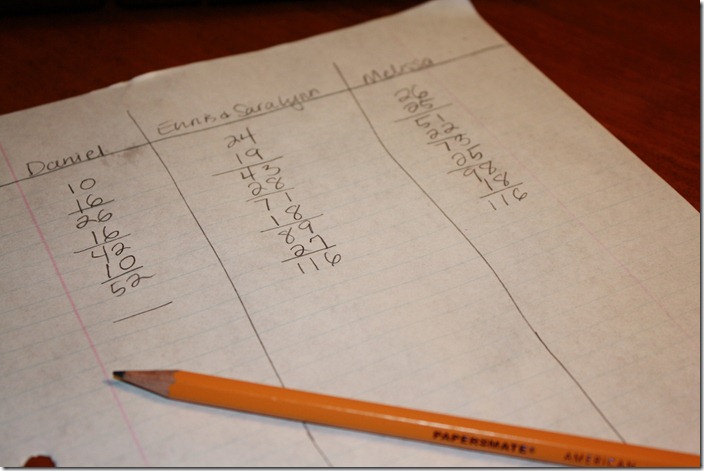 Daniel
10
16
26
16
42
10
52
Ennis & Saralynn
24
19
43
28
71
18
89
27
116
Melissa
26
25
51
22
73
15
88
28
116
PAPERSMATE® AMERICAN